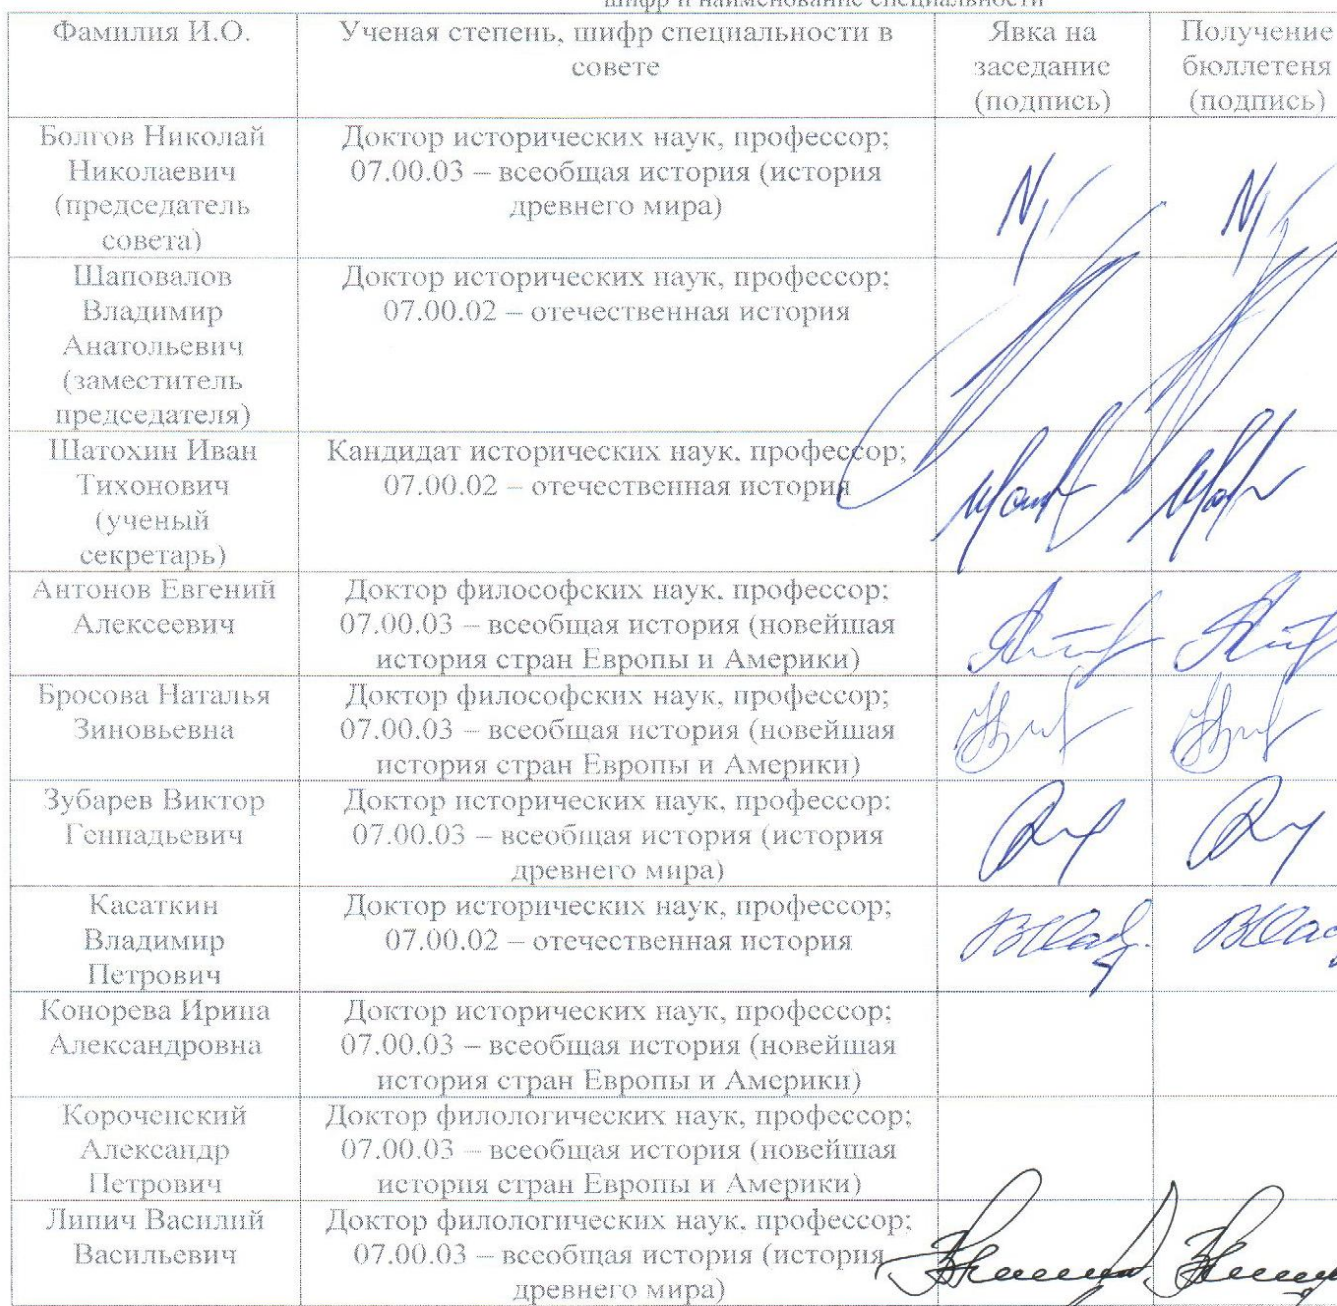 шифр и наименование специальности
Фамилия И.О.
Ученая степень, шифр специальности в
совете
Явка на
заседание
(подпись)
Получение
бюллетеня
(подпись)
Болгов Николай
Николаевич
(председатель
совета)
Доктор исторических наук, профессор;
07.00.03 – всеобщая история (история
древнего мира)
Шаповалов
Владимир
Анатольевич
(заместитель
председателя)
Доктор исторических наук, профессор;
07.00.02 – отечественная история
Шатохин Иван
Тихонович
(ученый
секретарь)
Кандидат исторических наук, профессор;
07.00.02 – отечественная история
Антонов Евгений
Алексеевич
Доктор философских наук, профессор;
07.00.03 – всеобщая история (новейшая
история стран Европы и Америки)
Бросова Наталья
Зиновьевна
Доктор философских наук, профессор;
07.00.03 – всеобщая история (новейшая
история стран Европы и Америки)
Зубарев Виктор
Геннадьевич
Доктор исторических наук, профессор;
07.00.03 – всеобщая история (история
древнего мира)
Касаткин
Владимир
Петрович
Доктор исторических наук, профессор;
07.00.02 – отечественная история
Конорева Ирина
Александровна
Доктор исторических наук, профессор;
07.00.03 – всеобщая история (новейшая
история стран Европы и Америки)
Короченский
Александр
Петрович
Доктор филологических наук, профессор;
07.00.03 – всеобщая история (новейшая
история стран Европы и Америки)
Липич Василий
Васильевич
Доктор филологических наук, профессор;
07.00.03 – всеобщая история (история
древнего мира)